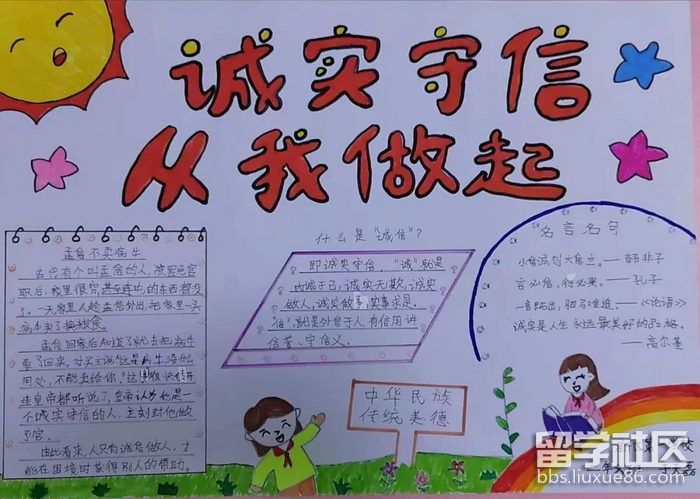 诚实守信
从我做起
孟信不卖病牛
古代有个叫孟信的人,被罢免官
职后,家里很穷甚至连吃的东西都没
了。一天家里人趁孟信外出,把家里一头
病牛卖了换粮食。
孟信回家后知道了就去把病牛
要了回来,对买主说"这是病牛没什么
用处,不能卖给你。"这事很快传开
连皇帝都听说了,皇帝认为他是一
个诚实守信的人,立刻封他做
了官。
由此看来,人只有诚信做人,才
能在困境时获得别人的帮助。
什么是"诚信"?
即诚实守信,"诚"就是
内诚于己,诚实无欺,诚实
做人,诚实做事,实事求是。
"信"就是外信于人,有信用讲
信誉、守信义。
中华民族
传统美德
名言名句
小信诚则大信立。——韩非子
言必信,行必果。——孔子
一言既出,驷马难追。——《论语》
诚实是人生永远最美好的品格。
——高尔基
留学社区
bbs.liuxue86.com